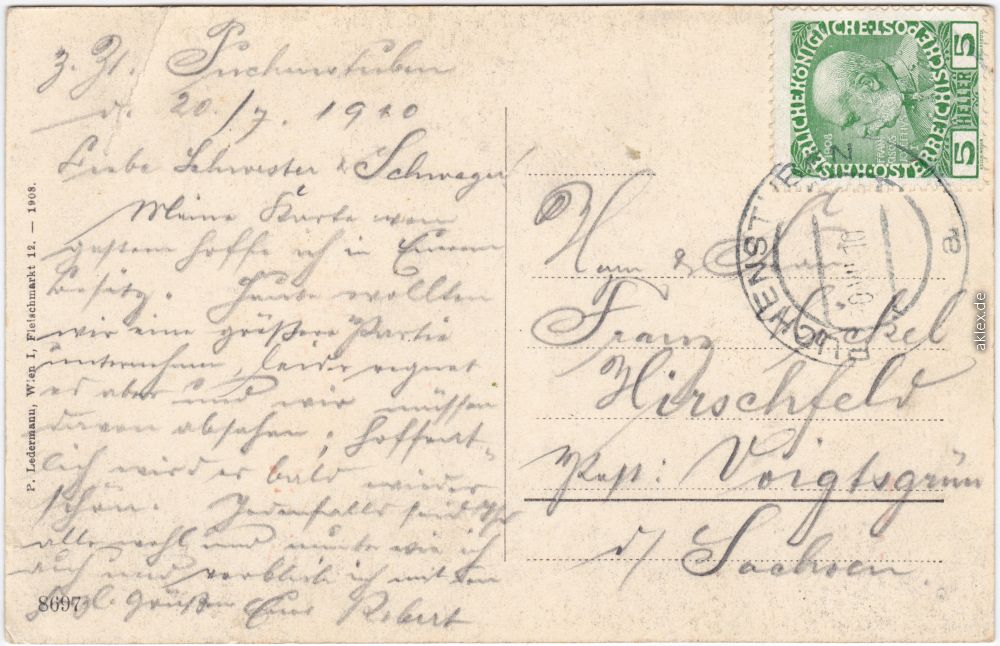 z. Zt. Puchenstuben
d. 20./7. 1910
Liebe Schwester & Schwager!
Meine Karte von
gestern hoffe ich in Eurem
Besitz. Heute wollten
wir eine größere Partie
unternehmen, leider regnet
es aber und wir müssen
davon absehen, hoffent-
lich wird es bald wieder
schön. Jedenfalls seid Ihr
alle wohl und munter wie ich
auch und verbleibe ich mit den
herzl. Grüßen Euer Robert
8697
P. Ledermann, Wien I, Fleischmarkt 12. — 1908.
KAISERLICHE KÖNIGLICHE ÖSTERREICHISCHE POST
5 HELLER 5
1908
PUCHENSTUBEN
a
Herrn &
Franz
Hirschfeld
Post: Voigtsgrün
i/ Sachsen.
aklex.de